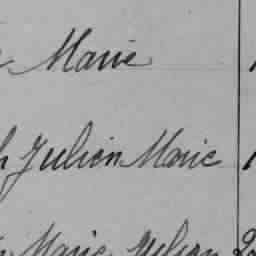 Marie
Julien Marie
Marie Julien